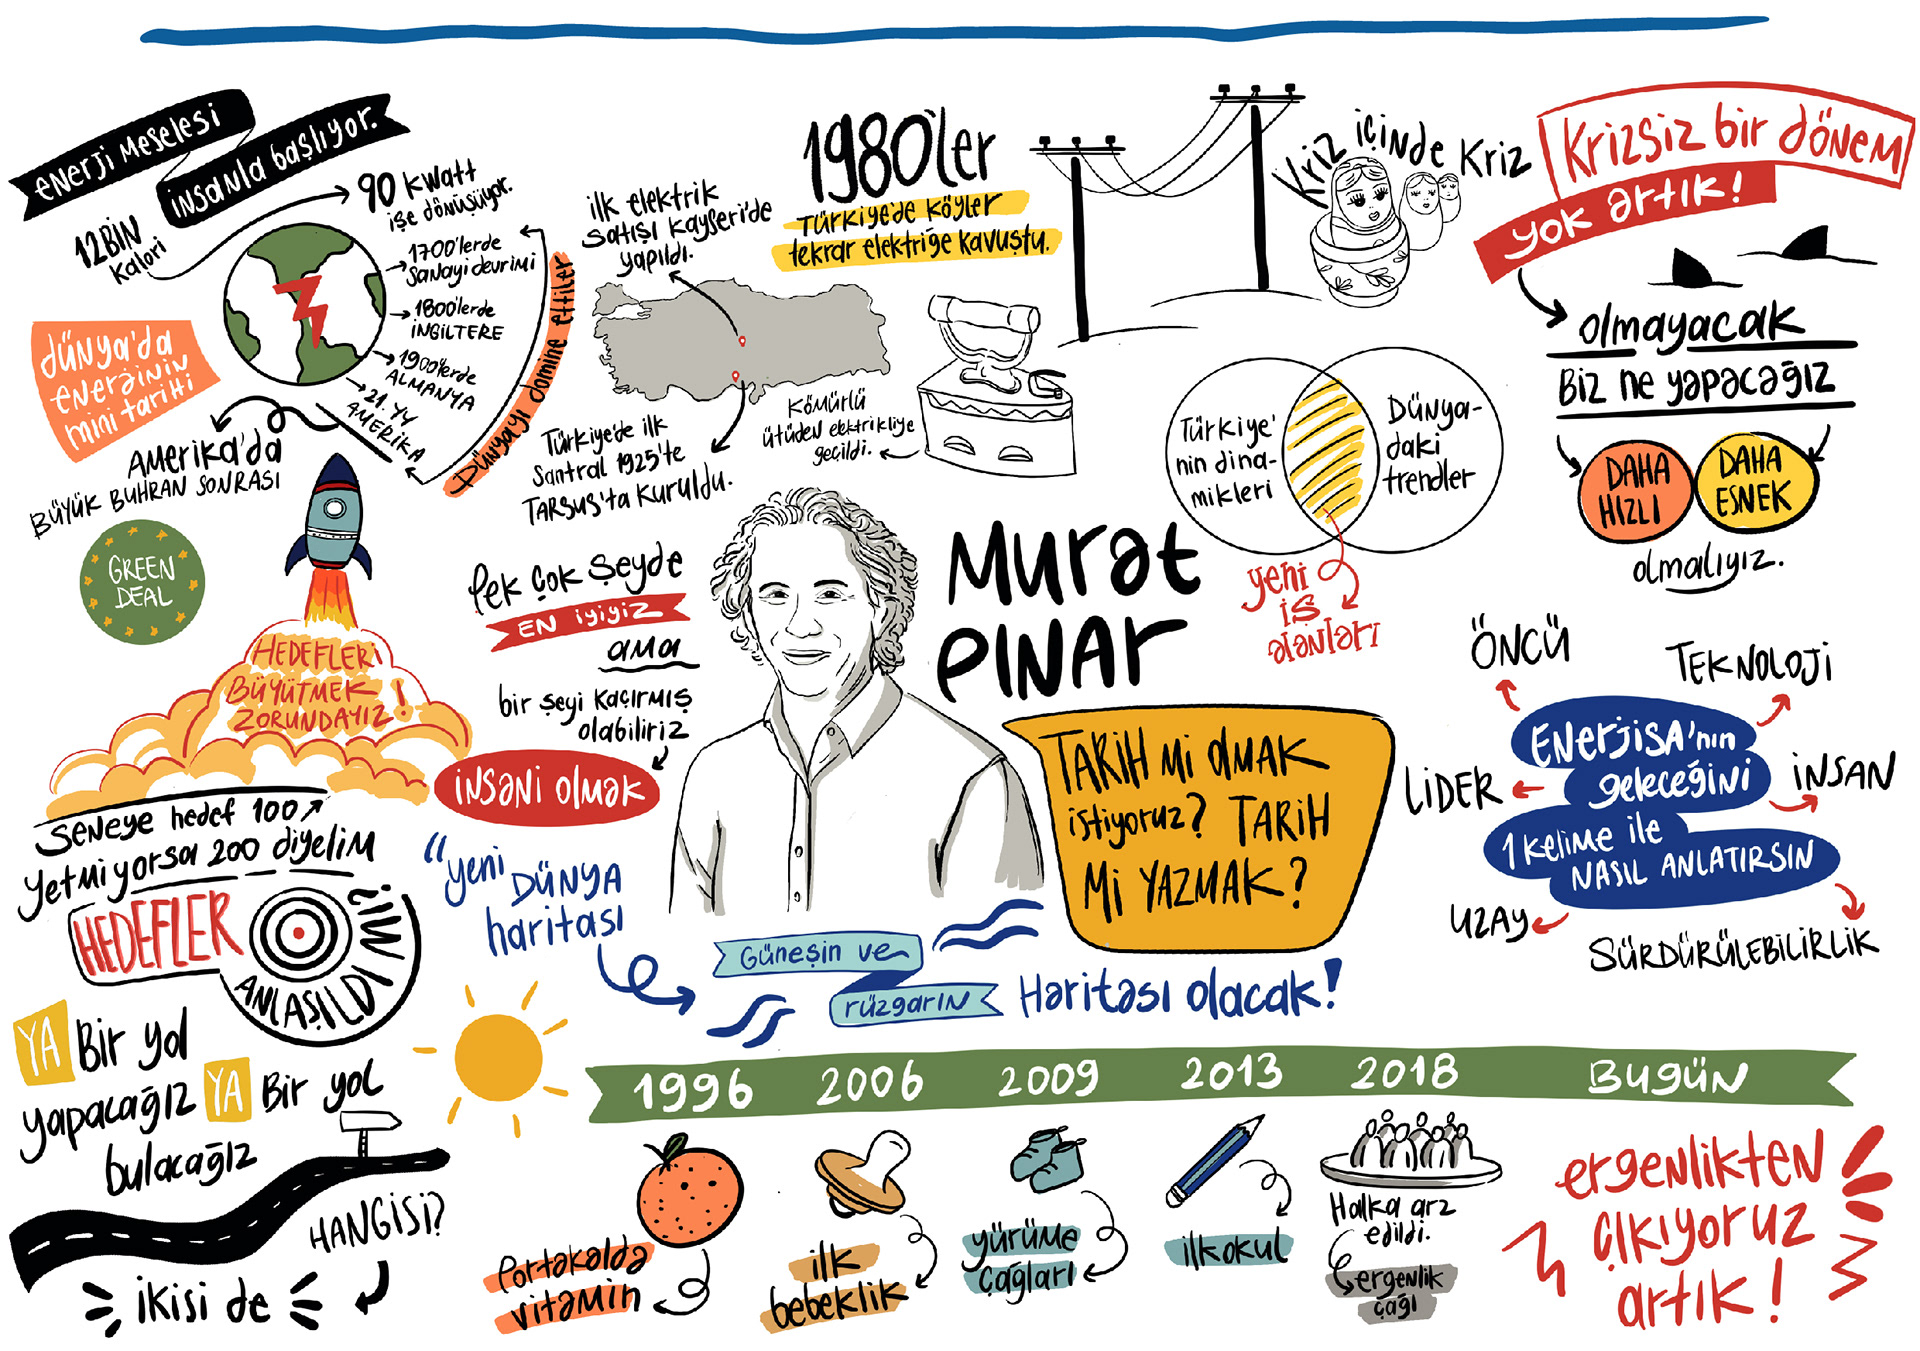 enerji meselesi
insanla başlıyor.
12BİN
kalori
90 kwatt
işe dönüşüyor.
1700'lerde
sanayi devrimi
1800'lerde
İNGİLTERE
1900'lerde
ALMANYA
21. yy
AMERİKA
Dünyayı domine ettiler
dünya'da
enerjinin
mini tarihi
Amerika'da
BÜYÜK BUHRAN SONRASI
GREEN
DEAL
HEDEFLERİ
BÜYÜTMEK
ZORUNDAYIZ!
seneye hedef 100
yetmiyorsa 200 diyelim
HEDEFLER
ANLAŞILDI MI?
YA Bir yol
yapacağız YA Bir yol
bulacağız
HANGİSİ?
İKİSİ de
ilk elektrik
satışı kayseri'de
yapıldı.
Türkiye'de ilk
santral 1925'te
TARSUS'ta kuruldu.
1980'ler
Türkiye'de köyler
tekrar elektriğe kavuştu.
KÖMÜRLÜ
ütüden elektrikliye
geçildi.
Pek çok şeyde
EN iyiyiz
ama
bir şeyi kaçırmış
olabiliriz
İNSANİ OLMAK
"yeni
DÜNYA
haritası
Güneşin ve
rüzgarın
Haritası olacak!
Murat
PINAR
TARİH Mİ OLMAK
istiyoruz? TARİH
Mİ YAZMAK?
Kriz içinde Kriz
Türkiye'
nin dina-
mikleri
Dünya-
daki
trendler
yeni
iş
alanları
Krizsiz bir dönem
yok artık!
olmayacak
Biz ne yapacağız
DAHA
HIZLI
DAHA
ESNEK
olmalıyız.
ÖNCÜ
TEKNOLOJİ
LİDER
İNSAN
UZAY
SÜRDÜRÜLEBİLİRLİK
ENERJİSA'nın
geleceğini
1 kelime ile
NASIL ANLATIRSIN
1996
2006
2009
2013
2018
Bugün
Portakalda
vitamin
ilk
bebeklik
yürüme
çağları
ilkokul
Halka arz
edildi.
ergenlik
çağı
ergenlikten
çıkıyoruz
artık!